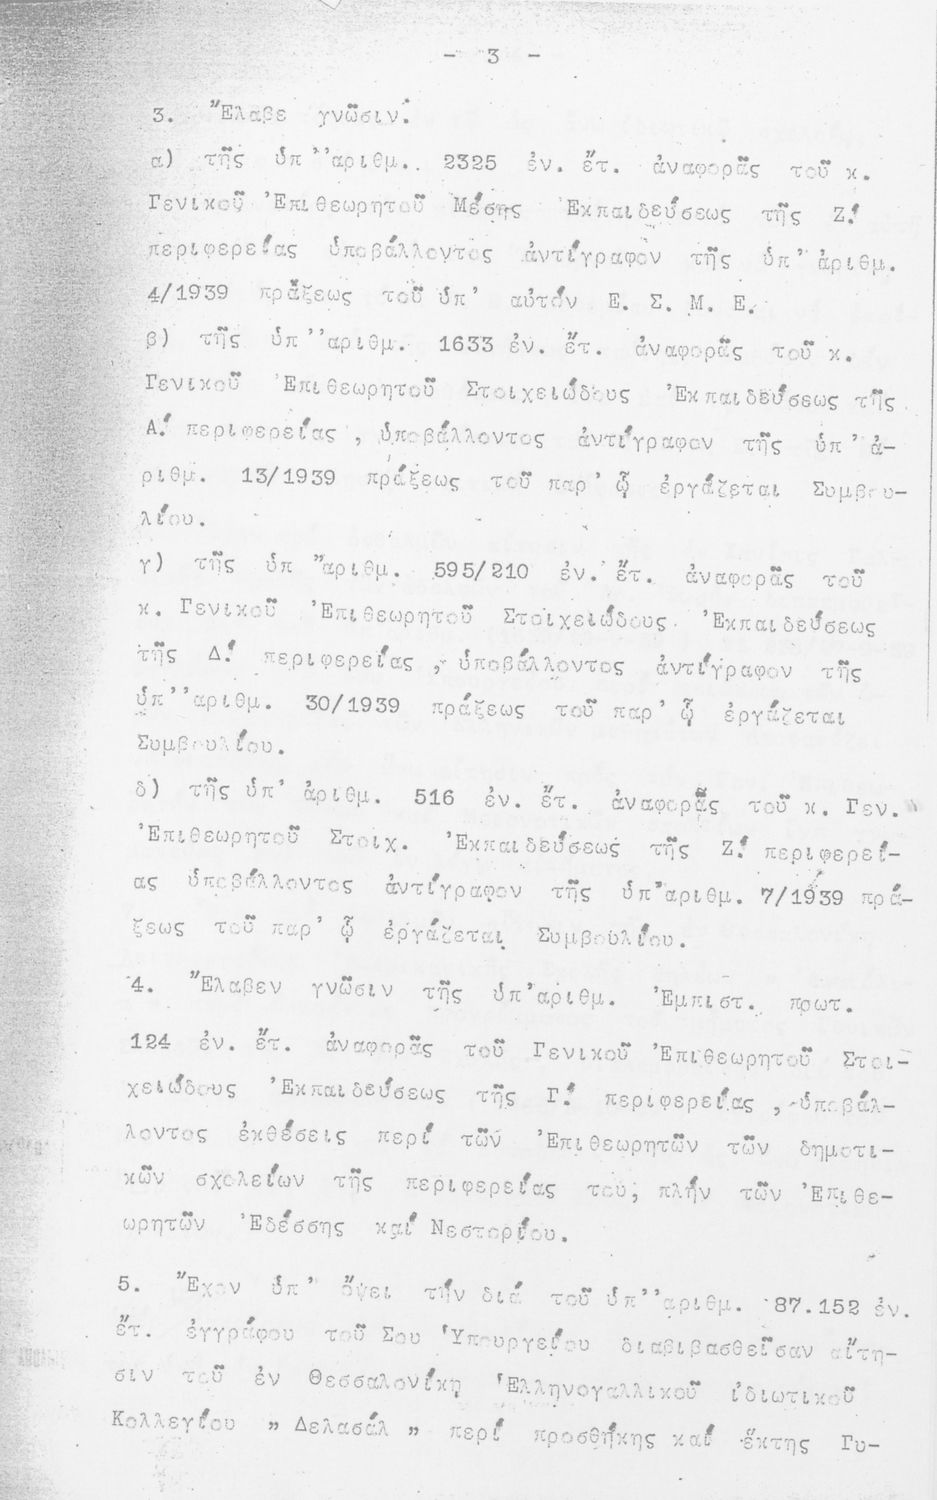 - 3 -
3. Ἔλαβε γνῶσιν:
α) τῆς ὑπ''ἀριθμ. 2325 ἐν. ἔτ. ἀναφορᾶς τοῦ κ.
Γενικοῦ Ἐπιθεωρητοῦ Μέσης Ἐκπαιδεύσεως τῆς Ζ!
περιφερείας ὑποβάλλοντος ἀντίγραφον τῆς ὑπ' ἀριθμ.
4/1939 πράξεως τοῦ ὑπ' αὐτόν Ε. Σ. Μ. Ε.
β) τῆς ὑπ''ἀριθμ. 1633 ἐν. ἔτ. ἀναφορᾶς τοῦ κ.
Γενικοῦ Ἐπιθεωρητοῦ Στοιχειώδους Ἐκπαιδεύσεως τῆς
Α! περιφερείας , ὑποβάλλοντος ἀντίγραφον τῆς ὑπ' ἀ-
ριθμ. 13/1939 πράξεως τοῦ παρ' ᾧ ἐργάζεται Συμβου-
λίου.
γ) τῆς ὑπ "ἀριθμ. 595/210 ἐν. ἔτ. ἀναφορᾶς τοῦ
κ. Γενικοῦ Ἐπιθεωρητοῦ Στοιχειώδους Ἐκπαιδεύσεως
τῆς Δ! περιφερείας , ὑποβάλλοντος ἀντίγραφον τῆς
ὑπ''ἀριθμ. 30/1939 πράξεως τοῦ παρ' ᾧ ἐργάζεται
Συμβουλίου.
δ) τῆς ὑπ' ἀριθμ. 516 ἐν. ἔτ. ἀναφορᾶς τοῦ κ. Γεν.
Ἐπιθεωρητοῦ Στοιχ. Ἐκπαιδεύσεως τῆς Ζ! περιφερεί-
ας ὑποβάλλοντος ἀντίγραφον τῆς ὑπ'ἀριθμ. 7/1939 πρά-
ξεως τοῦ παρ' ᾧ ἐργάζεται Συμβουλίου.
4. Ἔλαβεν γνῶσιν τῆς ὑπ'ἀριθμ. Ἐμπιστ. πρωτ.
124 ἐν. ἔτ. ἀναφορᾶς τοῦ Γενικοῦ Ἐπιθεωρητοῦ Στοι-
χειώδους Ἐκπαιδεύσεως τῆς Γ! περιφερείας , ὑποβάλ-
λοντος ἐκθέσεις περί τῶν Ἐπιθεωρητῶν τῶν δημοτι-
κῶν σχολείων τῆς περιφερείας του, πλήν τῶν Ἐπιθε-
ωρητῶν Ἐδέσσης καί Νεστορίου.
5. Ἔχον ὑπ' ὄψει τήν διά τοῦ ὑπ''ἀριθμ. 87.152 ἐν.
ἔτ. ἐγγράφου τοῦ Σου Ὑπουργείου διαβιβασθεῖσαν αἴτη-
σιν τοῦ ἐν Θεσσαλονίκῃ Ἑλληνογαλλικοῦ ἰδιωτικοῦ
Κολλεγίου " Δελασάλ " περί προσθήκης καί ἕκτης Γυ-